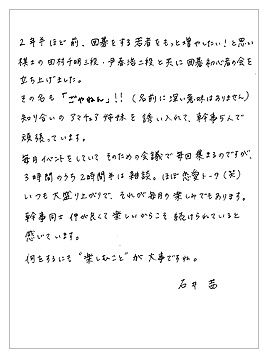 2年半ほど前、囲碁をする若者をもっと増やしたい！と思い
棋士の田村千明三段・尹春浩二段と共に囲碁初心者の会を
立ち上げました。
その名も「ごやねん」!! (名前に深い意味はありません)
知り合いのアマチュア姉妹を誘い入れて、幹事5人で
頑張っています。
毎月イベントをしていてそのための会議で毎回集まるのですが、
3時間のうち2時間半は雑談。ほぼ恋愛トーク(笑)
いつも大盛り上がりで、それが毎月の楽しみでもあります。
幹事同士仲が良くて楽しいからこそ続けられていると
感じています。
何をするにも"楽しむこと"が大事ですね。
石井 茜